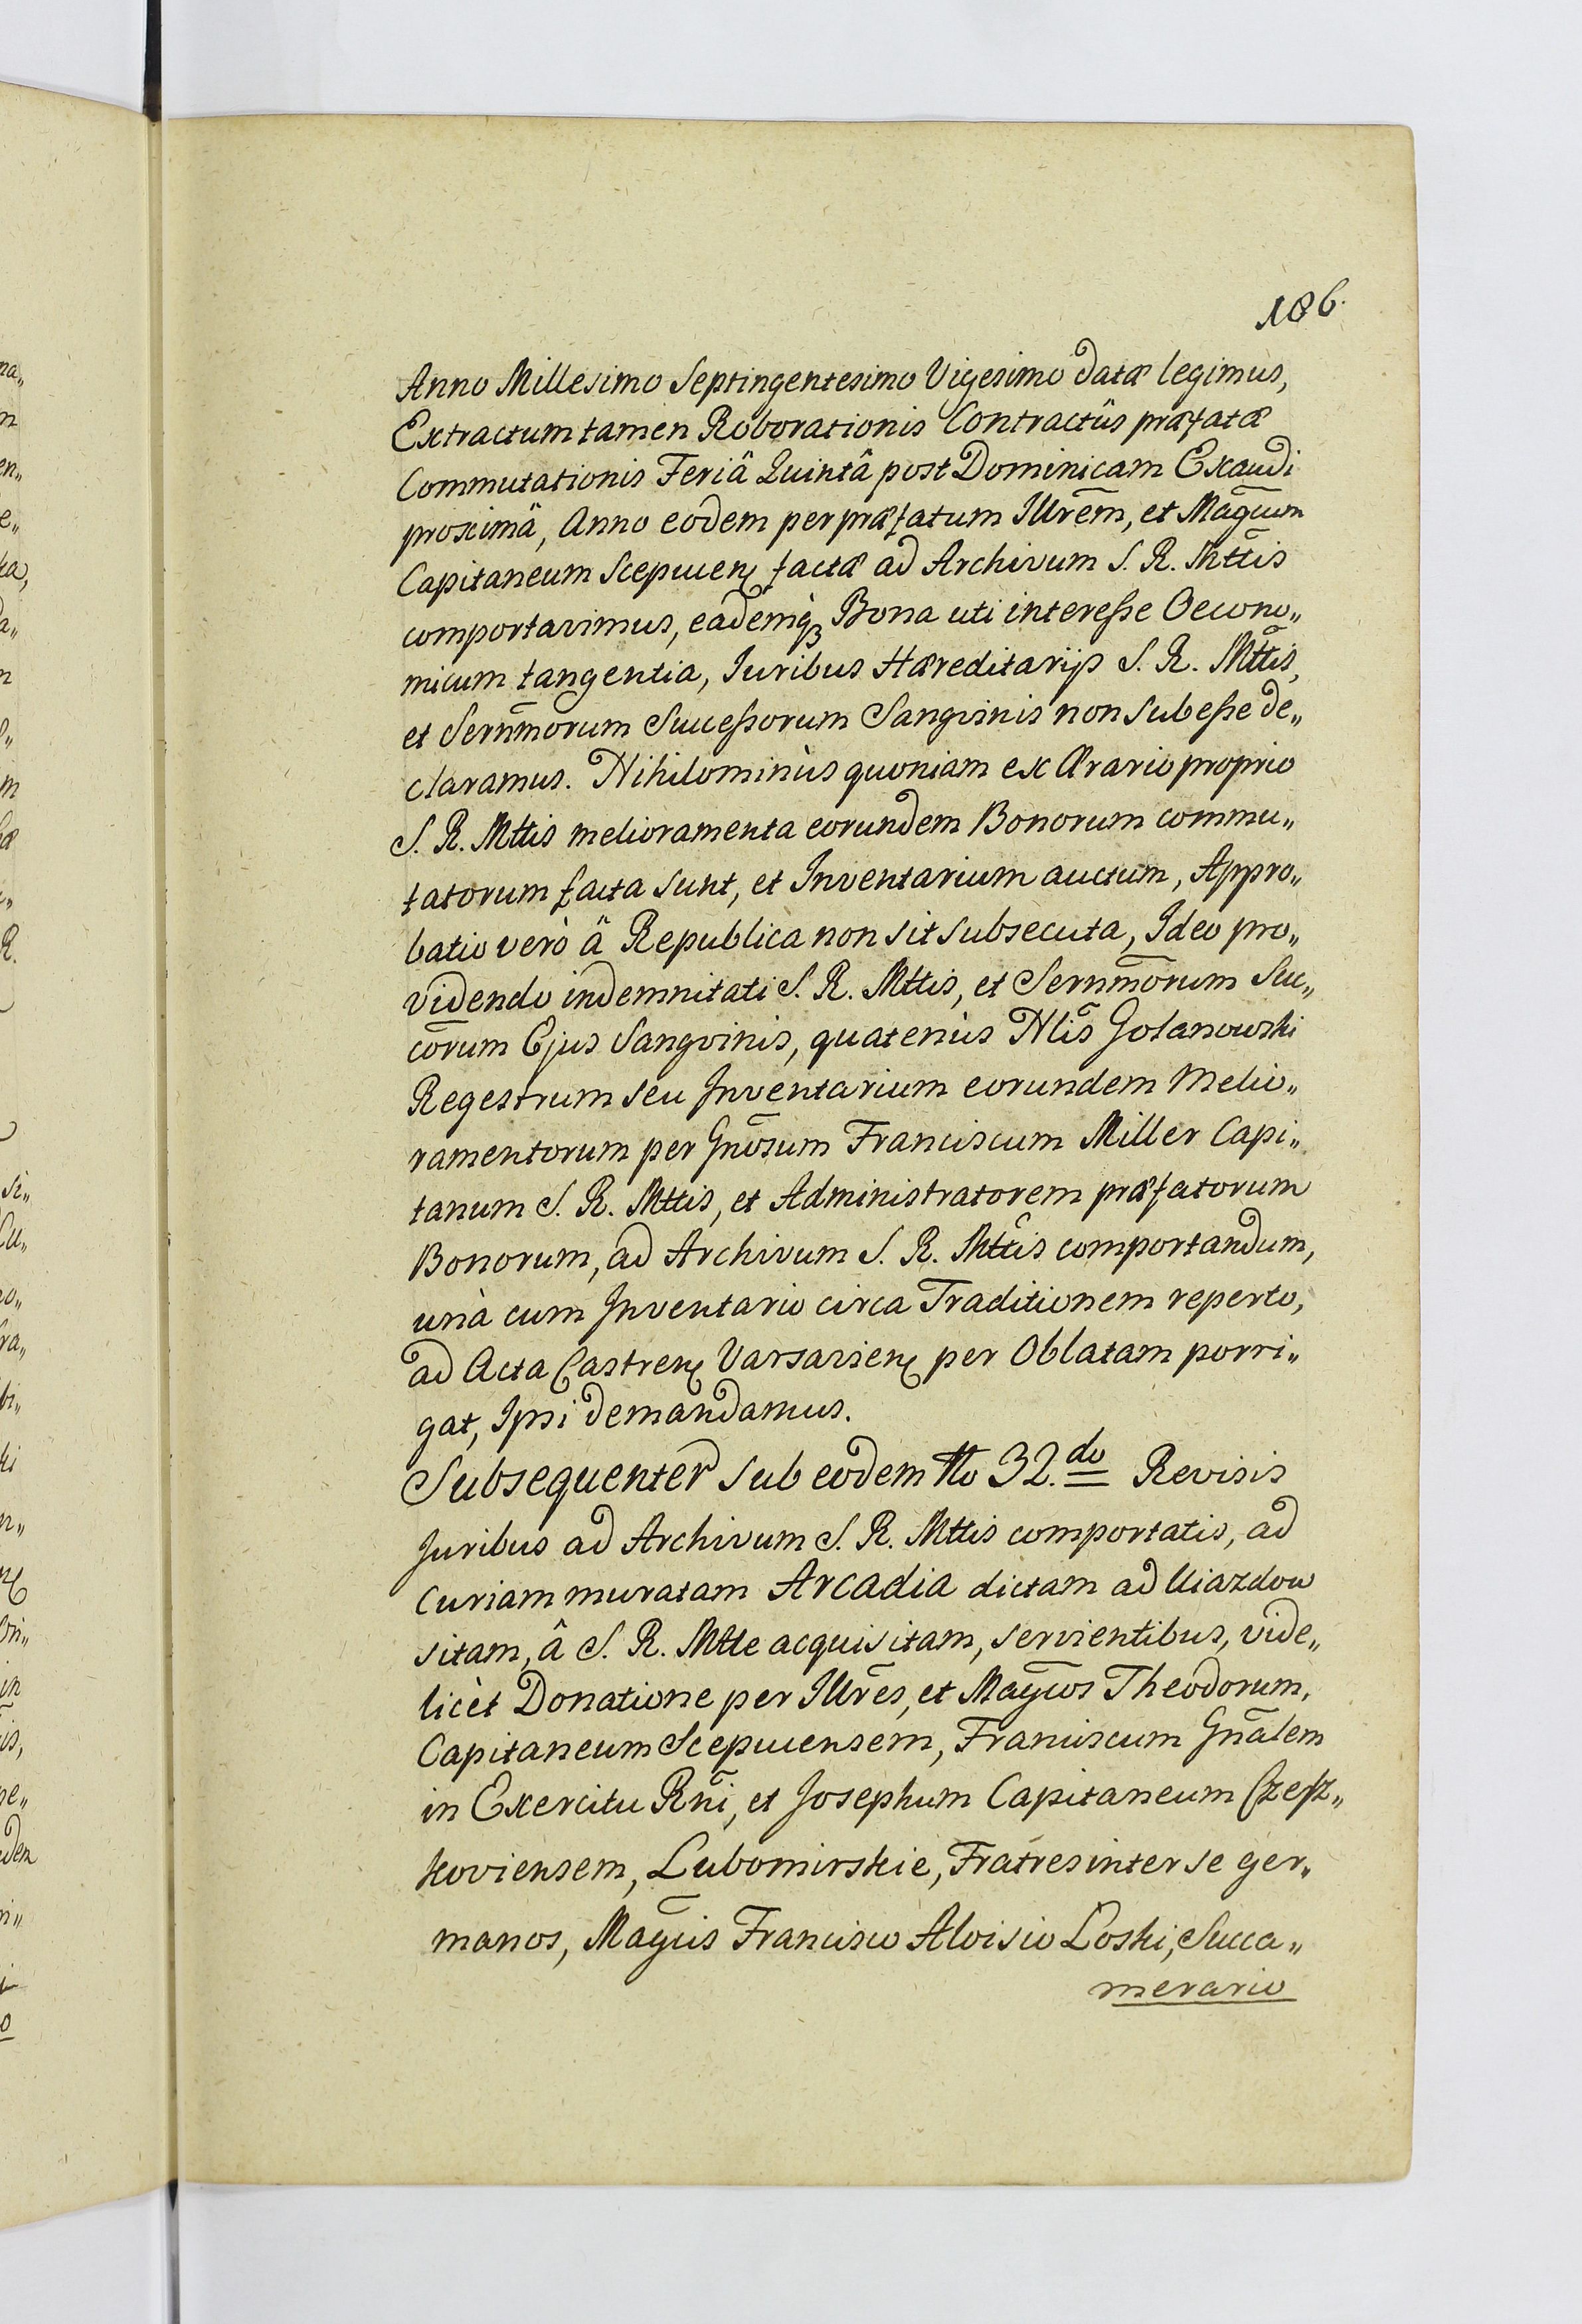 186.
Anno Millesimo Septingentesimo Vigesimo datæ legimus,
Extractum tamen Roborationis Contractûs præfatæ
Commutationis Feriâ Quintâ post Dominicam Exaudi
proximâ, Anno eodem per præfatum Illrem̄, et Mag̅cum
Capitaneum Scepucen̄ factæ ad Archivum S. R. Mttis
comportavimus, eademq̀ꝫ Bona uti interesse Oecono„
micum tangentia, Iuribus Hæreditarijs S. R. Mttis,
et Sern̄morum Successorum Sangvinis non subesse de„
claramus. Nihilominùs quoniam ex Ærario proprio
S. R. Mttis melioramenta eorundem Bonorum commu„
tatorum facta sunt, et Inventarium auctum, Appro„
batio verò â Republica non sit subsecuta, Ideo pro„
videndo indemnitati S. R. Mttis, et Sernm̄orum Suc„
cōrum Ejus Sangvinis, quatenùs Nlis̄ Golanowski
Regestrum seu Inventarium eorundem Melio„
ramentorum per Gn̄osum Franciscum Miller Capi„
tanum S. R. Mttis, et Administratorem præfatorum
Bonorum, ad Archivum S. R. Mttis comportandum,
unà cum Inventario circa Traditionem reperto,
ad Acta Castren̄ Varsavien̄ per Oblatam porri„
gat, Ipsi demandamus.
Subsequenter sub eodem No 32.do Revisis
Juribus ad Archivum S. R. Mttis comportatis, ad
Curiam muratam Arcadia dictam ad Uiazdow
sitam, â S. R. Mtte acquisitam, servientibus, vide„
licèt Donatione per Illres̄, et Mag̅cos Theodorum,
Capitaneum Scepucensem, Franciscum Gn̄alem
in Exercitu Rn̄i, et Josephum Capitaneum Czesz„
koviensem, Lubomirskie, Fratres inter se ger„
manos, Mag̅cis Francisco Aloisio Loski, Succa„
merario